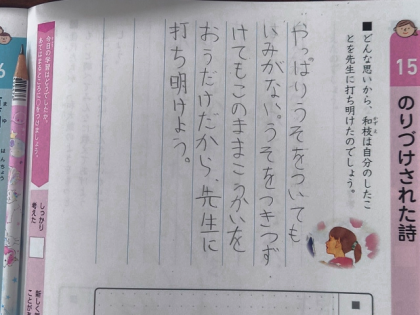 15 のりづけされた詩
■どんな思いから、和枝は自分のしたこ
とを先生に打ち明けたのでしょう。
やっぱりうそをついても
いみがない。うそをつきつず
けてもこのままこうかいを
おうだけだから、先生に
打ち明けよう。
今日の学習はどうでしたか。
しっかり
考えた
新しく
ことが